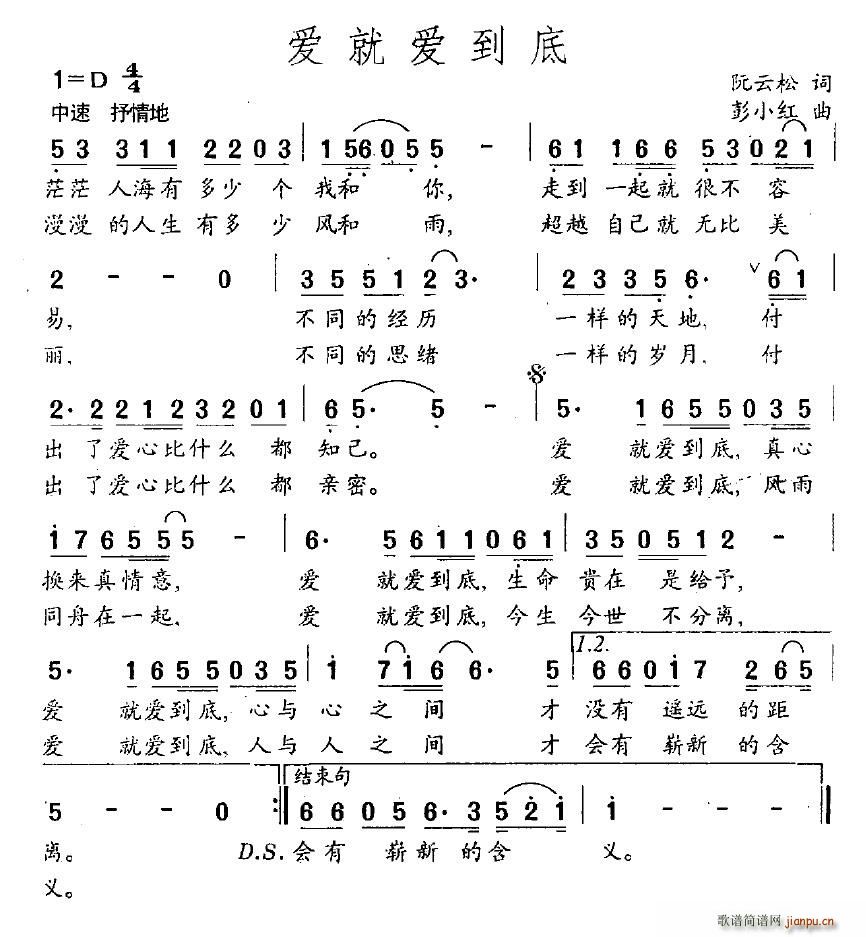 爱就爱到底
1=D 4/4
阮云松 词
中速 抒情地
彭小红 曲
5 3 3 1 1 2 2 0 3 | 1 5 6 0 5 5 - | 6 1 1 6 6 5 3 0 2 1 |
茫茫 人海有 多少 个 我和 你, 走到 一起就 很不 容
漫漫 的人生 有多 少 风和 雨, 超越 自己就 无比 美
2 - - 0 | 3 5 5 1 2 3· | 2 3 3 5 6· ∨ 6 1 |
易, 不同的经历 一样的天地, 付
丽, 不同的思绪 一样的岁月, 付
2· 2 2 1 2 3 2 0 1 | 6 5· 5 - | 5· 1 6 5 5 0 3 5 |
出 了爱心比什么 都 知己。 爱 就爱到底,真心
出 了爱心比什么 都 亲密。 爱 就爱到底,风雨
1 7 6 5 5 5 - | 6· 5 6 1 1 0 6 1 | 3 5 0 5 1 2 - |
换来真情意, 爱 就爱到底,生命 贵在 是给予,
同舟在一起, 爱 就爱到底,今生 今世 不分离,
1.2.
5· 1 6 5 5 0 3 5 | 1 7 1 6 6· 5 | 6 6 0 1 7 2 6 5 |
爱 就爱到底,心与 心 之 间 才 没有 遥远 的距
爱 就爱到底,人与 人 之 间 才 会有 崭新 的含
结束句
5 - - 0 :| 6 6 0 5 6· 3 5 2 1 | 1 - - - ||
离。 D.S. 会有 崭新 的含 义。
义。
歌谱简谱网 jianpu.cn